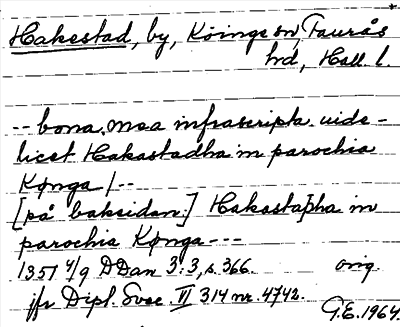 Hakestad, by, Köinge sn, Faurås
hd, Hall. l.
-- bona mea infrascripta uide-
licet Hakastadha in parochia
Kønga / --
[på baksidan:] Hakastaþha in
parochia Kønga ---
1357 4/9 DDan 3:3, s. 366. orig.
jfr Dipl. Svec. VI 314 nr. 4742.
G.E. 1964